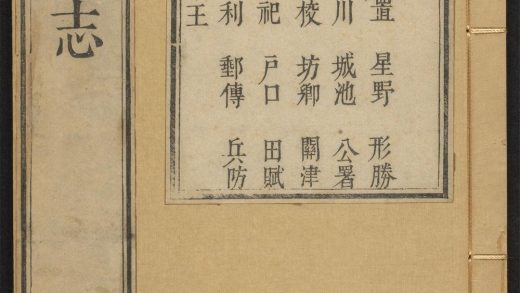 置 星野 形勝
川 城池 公署
坊鄉 關津
祀 戶口 田賦
利 郵傳 兵防
王
志